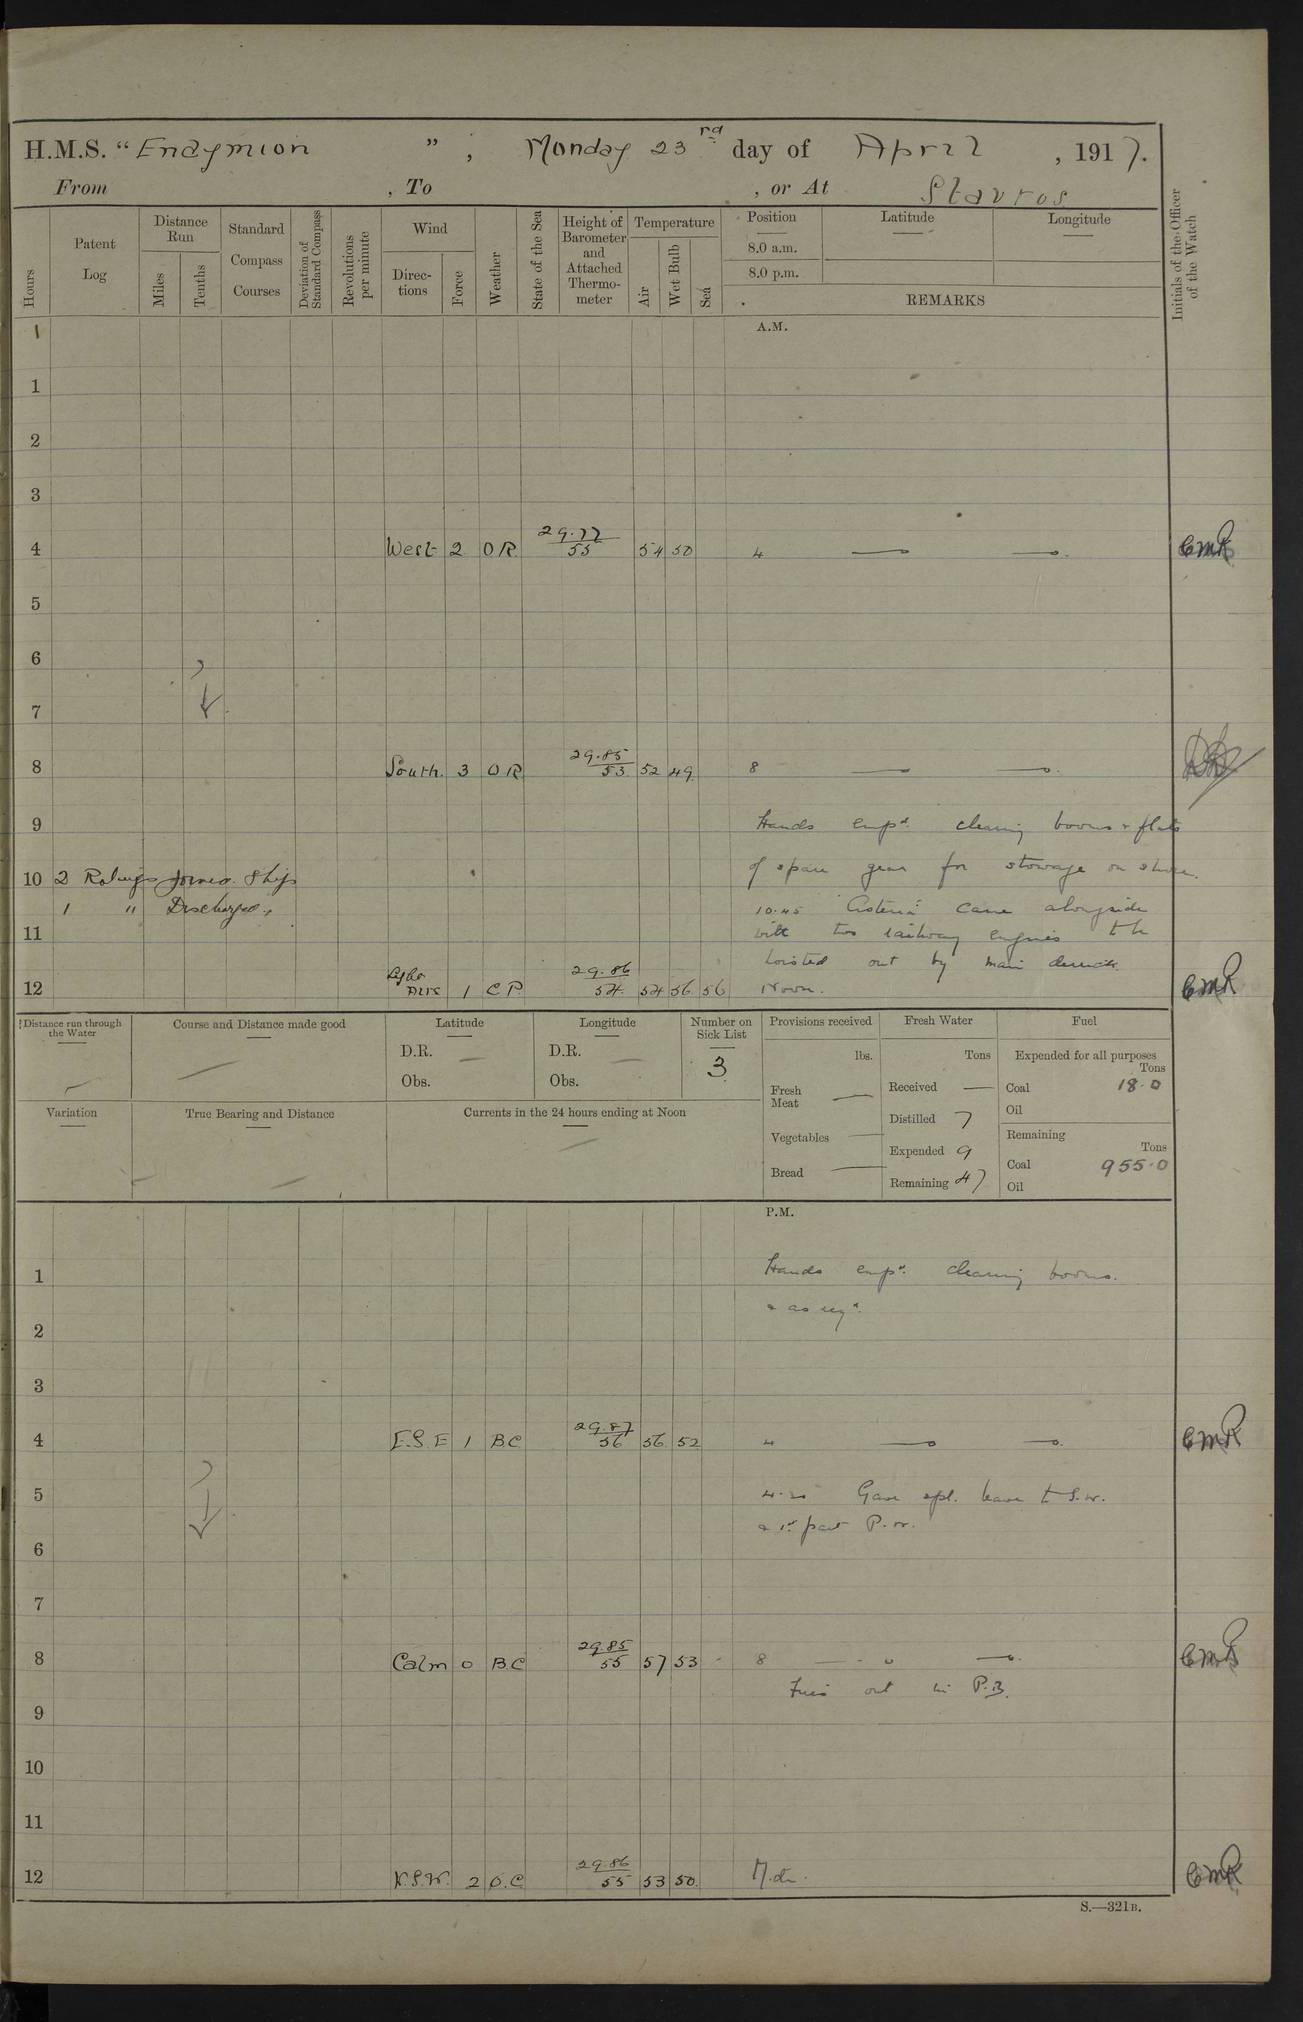 H.M.S. "Endymion ", Monday 23rd day of April, 1917.
From , To , or At Stavros
Hours
Patent Log
Distance Run
Miles
Tenths
Standard Compass Courses
Deviation of Standard Compass
Revolutions per minute
Wind
Directions
Force
Weather
State of the Sea
Height of Barometer and Attached Thermometer
Temperature
Air
Wet Bulb
Sea
Position
8.0 a.m.
8.0 p.m.
Latitude
Longitude
REMARKS
Initials of the Officer of the Watch
A.M.
1
2
3
4 West 2 OR 29.77 55 54 50 4 CMR
5
6
7
8 South. 3 OR 29.85 53 52 49 8
9 Hands emp'd. clearing booms & flats
10 2 Ratings Joined Ship of spare gear for stowage on shore.
1 " Discharged " 10.45 "Asteria" came alongside
11 with two railway engines to be
hoisted out by main derrick
12 Light Airs 1 CP. 29.86 54 54 56 56 Noon. CMR
Distance run through the Water
Course and Distance made good
Latitude
D.R.
Obs.
Longitude
D.R.
Obs.
Number on Sick List
3
Provisions received
lbs.
Fresh Meat
Vegetables
Bread
Fresh Water
Tons
Received
Distilled 7
Expended 9
Remaining 47
Fuel
Expended for all purposes
Tons
Coal 18.0
Oil
Remaining
Tons
Coal 955.0
Oil
Variation
True Bearing and Distance
Currents in the 24 hours ending at Noon
P.M.
1 Hands emp'd. clearing booms.
& as req'd.
2
3
4 E.S.E 1 BC 29.87 56 56 52 4 CMR
5 4.20 Gave spl. leave to S.W.
& 1st part P.W.
6
7
8 Calm 0 B.C 29.85 55 57 53 8 CMR
Fires out in P.B.
9
10
11
12 W.S.W. 2 O.C. 29.86 55 53 50. M.dn. CMR
S.—321B.